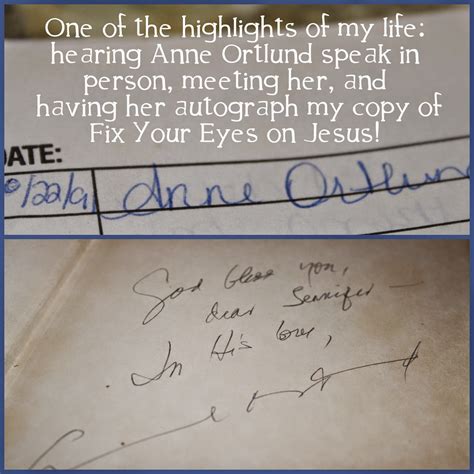 One of the highlights of my life:
hearing Anne Ortlund speak in
person, meeting her, and
having her autograph my copy of
Fix Your Eyes on Jesus!
ATE:
/22/91 Anne Ortlun
God bless you,
dear Jennifer —
In His love,
Anne Ortlund